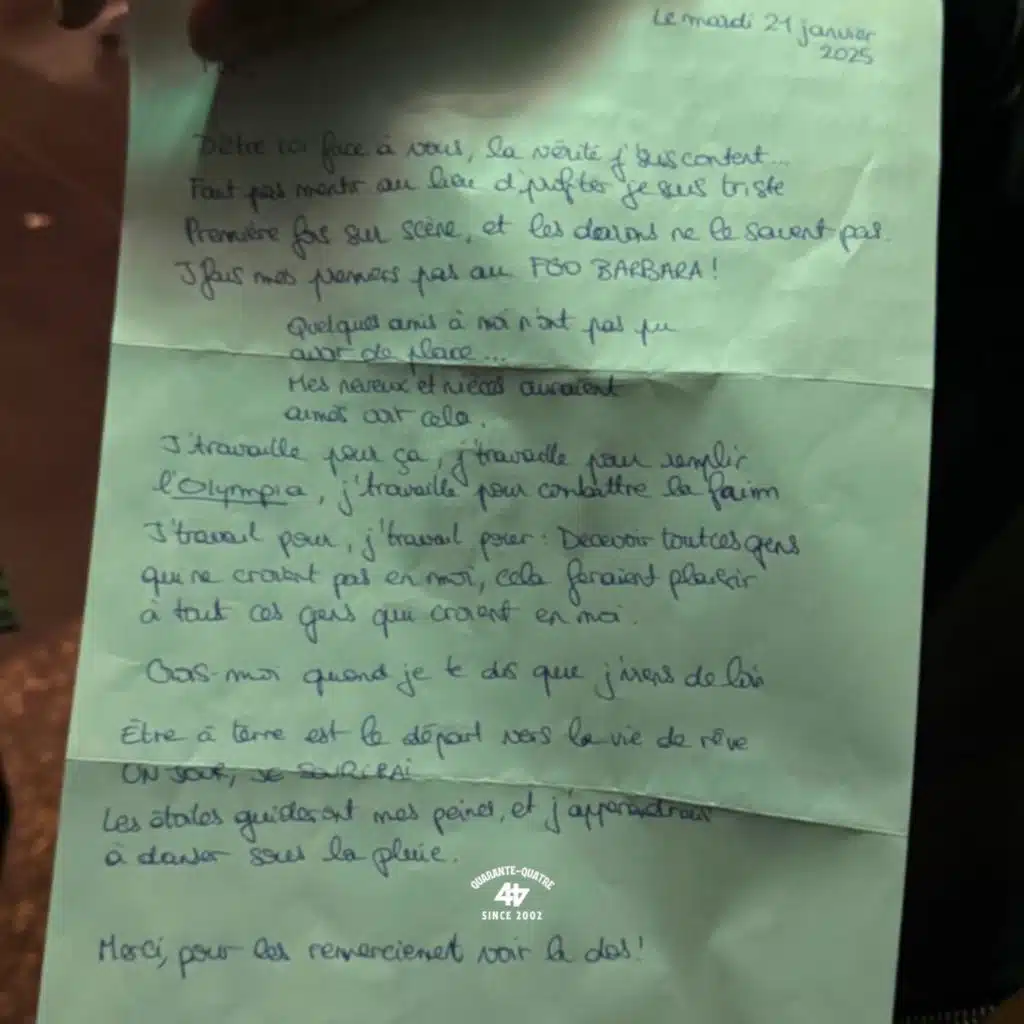 Le mardi 21 janvier
2025
D'être ici face à vous, la vérité j'suis content...
Faut pas mentir au lieu d'profiter je suis triste
Première fois sur scène, et les darons ne le savent pas.
J'fais mes premiers pas au FGO BARBARA!
Quelques amis à moi n'ont pas pu
avoir de place...
Mes neveux et nièces auraient
aimés cela.
J'travaille pour ça, j'travaille pour remplir
l'Olympia, j'travaille pour combattre la faim
J'travail pour, j'travail pour: Decevoir tout ces gens
qui ne croient pas en moi, cela feraient plaisir
à tout ces gens qui croient en moi.
Crois-moi quand je te dis que j'viens de loin
Être à terre est le départ vers la vie de rêve
UN JOUR, JE SOURIRAI
Les étoiles guideront mes peines, et j'apprendrais
à danser sous la pluie.
QUARANTE-QUATRE
44
SINCE 2002
Merci, pour les remerciement voir le dos!